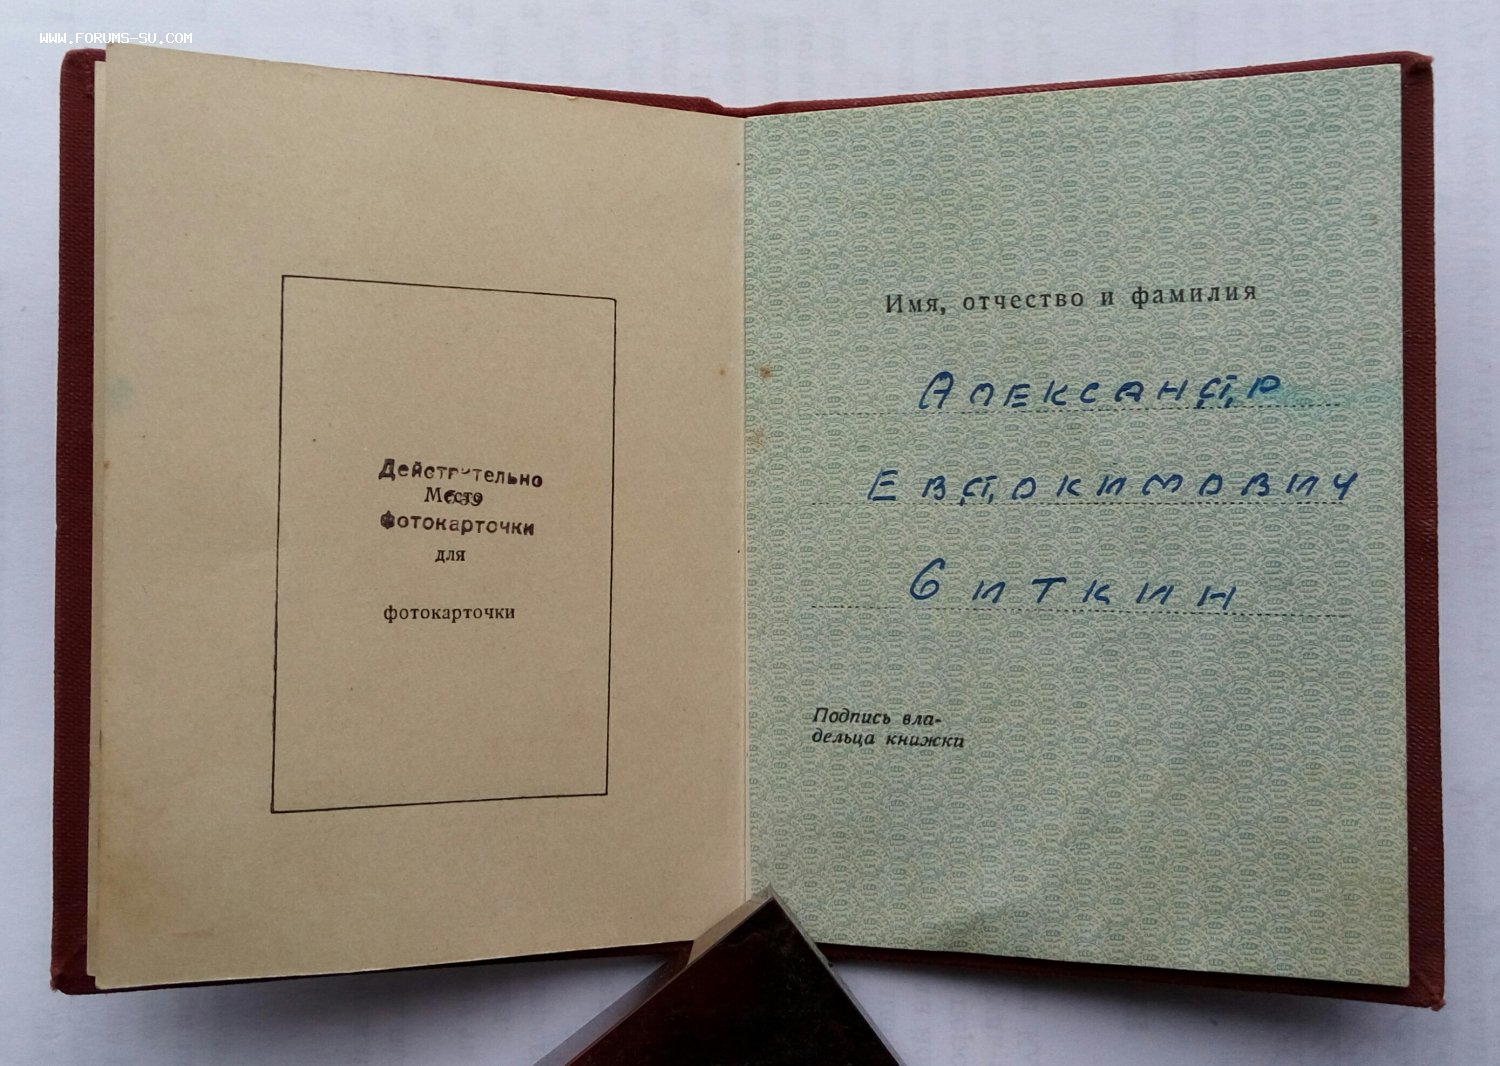 WWW.FORUMS-SU.COM
Действительно
Место
без
фотокарточки
для
фотокарточки
Имя, отчество и фамилия
Александр
Евдокимович
Ситкин
Подпись вла-
дельца книжки